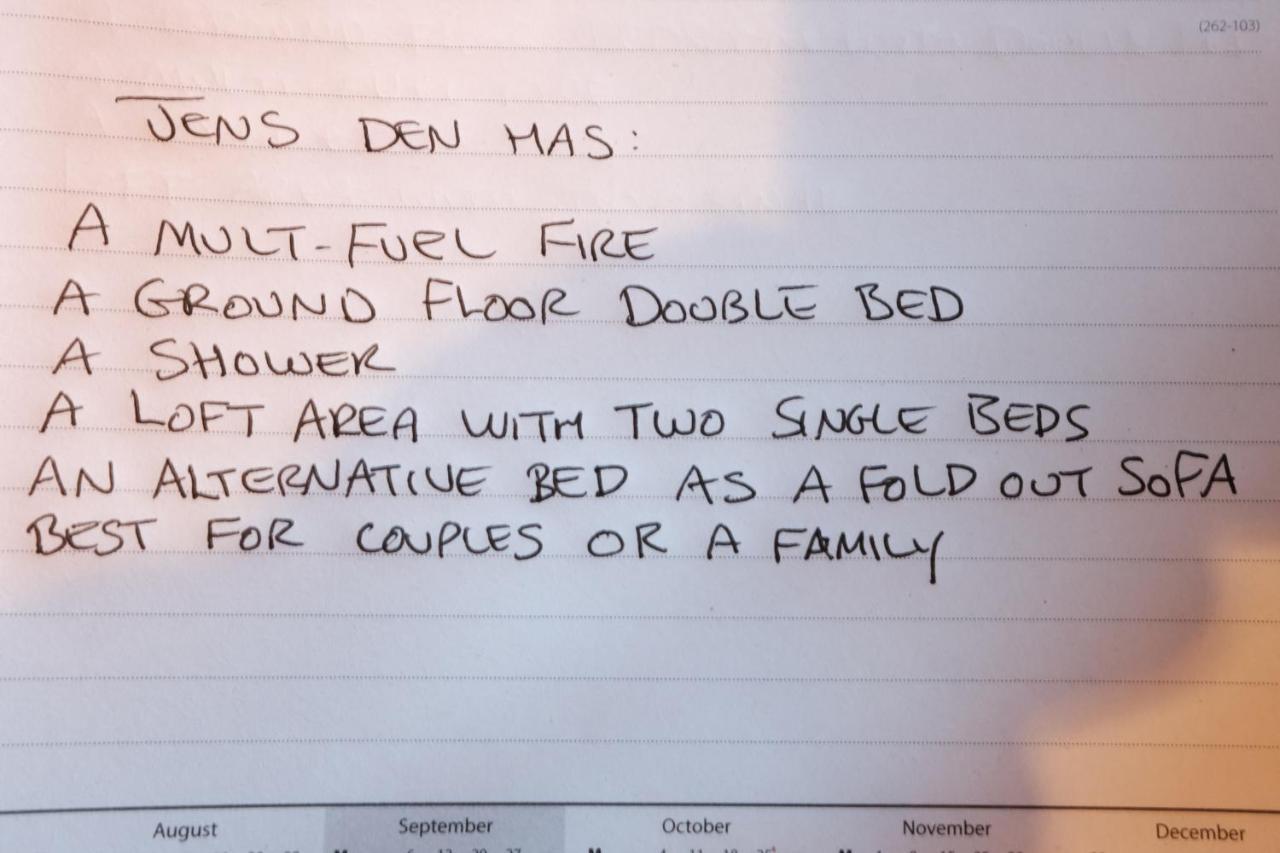 (262-103)
JENS DEN HAS:
A MULT-FUEL FIRE
A GROUND FLOOR DOUBLE BED
A SHOWER
A LOFT AREA WITH TWO SINGLE BEDS
AN ALTERNATIVE BED AS A FOLD OUT SOFA
BEST FOR COUPLES OR A FAMILY
August September October November December